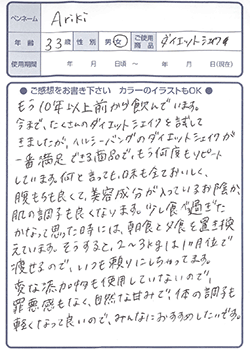 ペンネーム Ariki
年齢 33歳 性別 男・女 ご使用商品 ダイエットシェイク
使用期間 年 月 日頃 ～ 年 月 日(現在)
●ご感想をお書き下さい カラーのイラストもOK●
もう10年以上前から飲んでいます。
今まで、たくさんのダイエットシェイクを試して
きましたが、イルシーバングのダイエットシェイクが
一番満足できる商品で、もう何度もリピート
しています。何と言っても、味も全ておいしく、
腹もちも良くて、美容成分が入っているお陰か、
肌の調子も良くなります。少し食べ過ぎた
かなって思った時には、朝食と夕食を置き換
えています。そうすると、2～3kgは1ヶ月位で
痩せるので、いつも頼りにしちゃってます。
変な添加物も使用していないので、
罪悪感もなく、自然な甘みで、体の調子も
軽くなって良いので、みんなにおすすめしたいです。